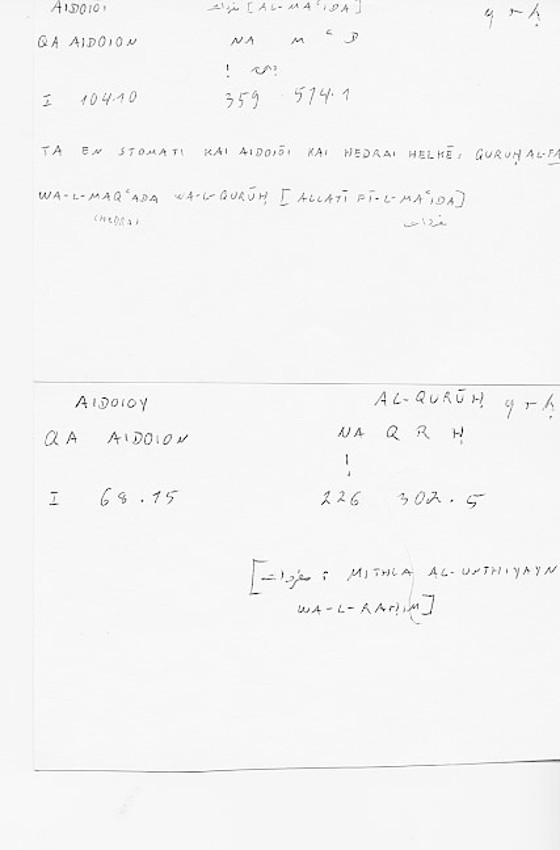 AIDOIŌI [AL-MAʿIDA] q r ḥ
QA AIDOION NA M ʿ D
!
I 104.10 359 574.1
TA EN STOMATI KAI AIDOIŌI KAI HEDRAI HELKĒ: QURUḤ AL-FA
WA-L-MAQʿADA WA-L-QURŪḤ [ALLATĪ FĪ-L-MAʿIDA]
(HEDRAI
AIDOIOY AL-QURŪḤ q r ḥ
QA AIDOION NA Q R Ḥ
!
I 68.15 226 302.5
[ : MITHLA AL-UNTHIYAYN
WA-L-RAḤIM]